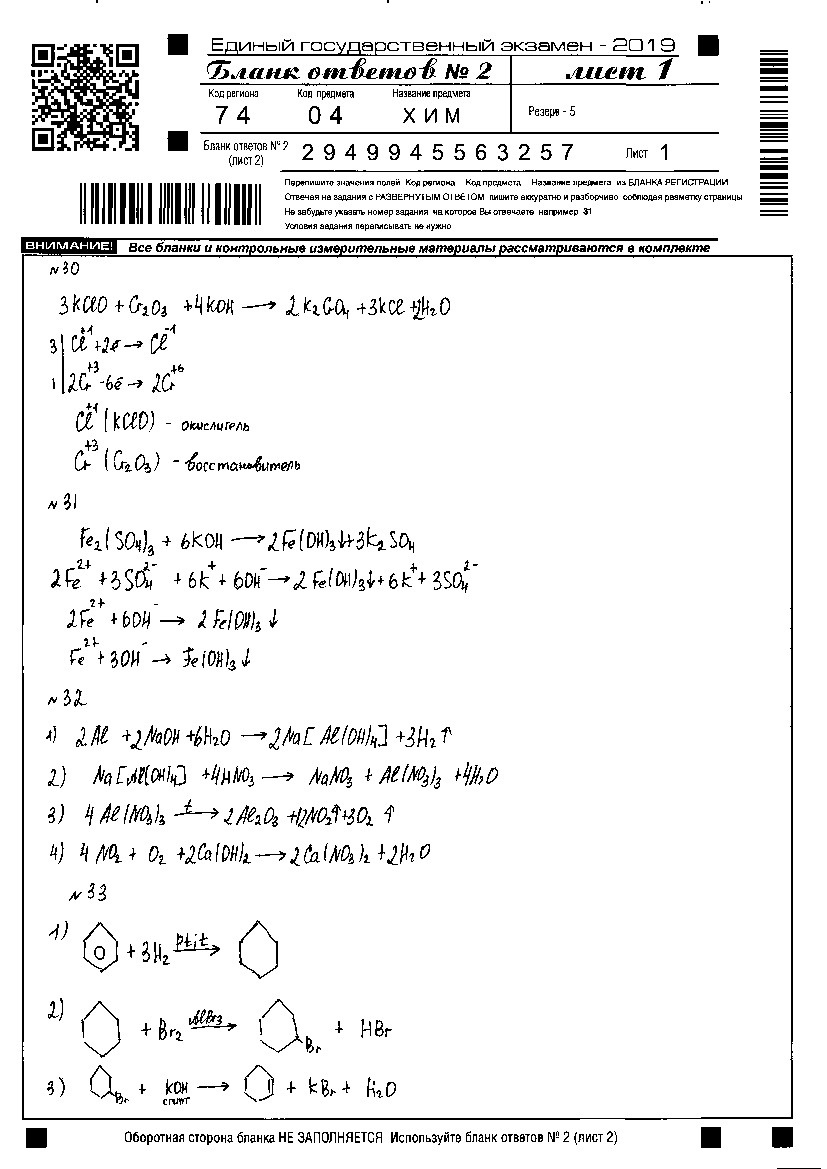 Единый государственный экзамен - 2019
Бланк ответов № 2 лист 1
Код региона Код предмета Название предмета
74 04 ХИМ Резерв - 5
Бланк ответов № 2 (лист 2) 2949945563257 Лист 1
Перепишите значения полей Код региона Код предмета Название предмета из БЛАНКА РЕГИСТРАЦИИ
Отвечая на задания с РАЗВЕРНУТЫМ ОТВЕТОМ пишите аккуратно и разборчиво соблюдая разметку страницы
Не забудьте указать номер задания на которое Вы отвечаете например 31
Условия задания переписывать не нужно
ВНИМАНИЕ! Все бланки и контрольные измерительные материалы рассматриваются в комплекте
№30
3KClO + Cr₂O₃ + 4KOH → 2K₂CrO₄ + 3KCl + 2H₂O
3 | Cl⁺¹ + 2ē → Cl⁻¹
1 | 2Cr⁺³ - 6ē → 2Cr⁺⁶
Cl⁺¹ (KClO) - окислитель
Cr⁺³ (Cr₂O₃) - восстановитель
№31
Fe₂(SO₄)₃ + 6KOH → 2Fe(OH)₃↓ + 3K₂SO₄
2Fe²⁺ + 3SO₄²⁻ + 6K⁺ + 6OH⁻ → 2Fe(OH)₃↓ + 6K⁺ + 3SO₄²⁻
2Fe²⁺ + 6OH⁻ → 2Fe(OH)₃↓
Fe²⁺ + 3OH⁻ → Fe(OH)₃↓
№32
1) 2Al + 2NaOH + 6H₂O → 2Na[Al(OH)₄] + 3H₂↑
2) Na[Al(OH)₄] + 4HNO₃ → NaNO₃ + Al(NO₃)₃ + 4H₂O
3) 4Al(NO₃)₃ t→ 2Al₂O₃ + 12NO₂↑ + 3O₂↑
4) 4NO₂ + O₂ + 2Ca(OH)₂ → 2Ca(NO₃)₂ + 2H₂O
№33
1) + 3H₂ Pt; t →
2) + Br₂ AlBr₃ → Br + HBr
3) Br + KOH спирт → + KBr + H₂O
Оборотная сторона бланка НЕ ЗАПОЛНЯЕТСЯ Используйте бланк ответов № 2 (лист 2)